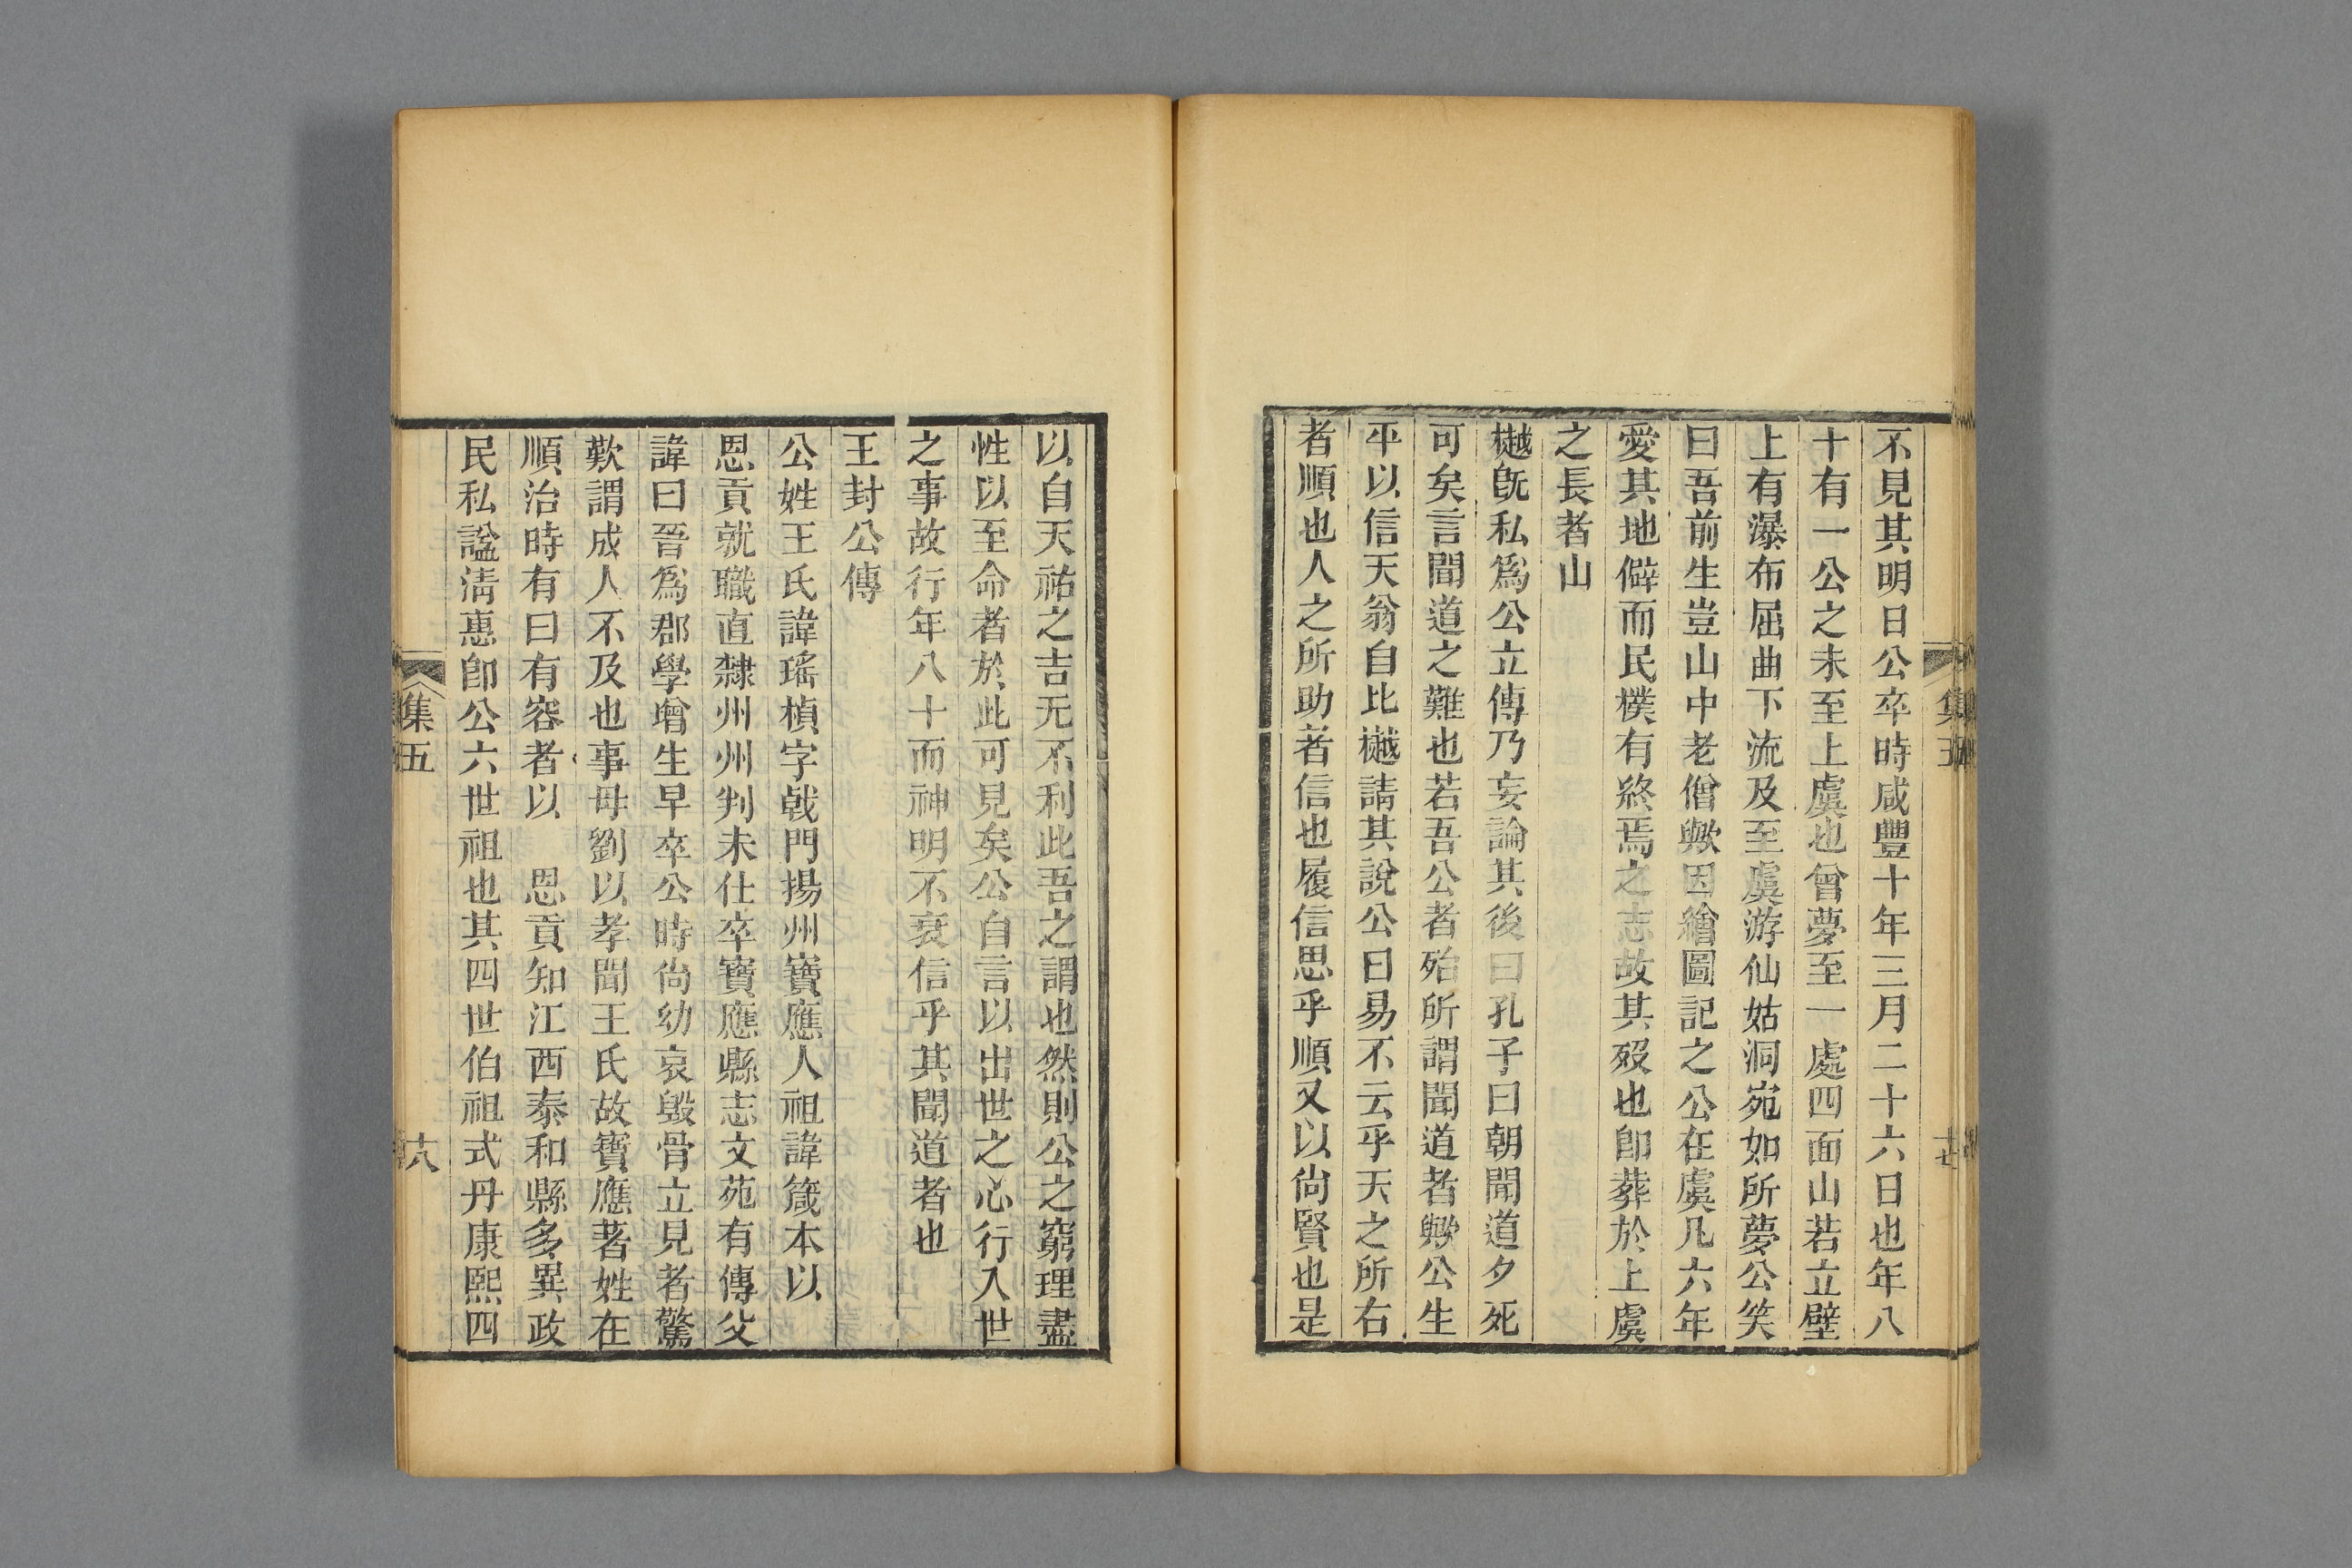 不見其明日公卒時咸豐十年三月二十六日也年八
十有一公之未至上虞也曾夢至一處四面山若立壁
上有瀑布屈曲下流及至虞游仙姑洞宛如所夢公笑
曰吾前生豈山中老僧歟因繪圖記之公在虞凡六年
愛其地僻而民樸有終焉之志故其歿也卽葬於上虞
之長者山
樾旣私爲公立傳乃妄論其後曰孔子曰朝聞道夕死
可矣言聞道之難也若吾公者殆所謂聞道者歟公生
平以信天翁自比樾請其說公曰易不云乎天之所右
者順也人之所助者信也履信思乎順又以尙賢也是
集五
十七
以自天祐之吉无不利此吾之謂也然則公之窮理盡
性以至命者於此可見矣公自言以出世之心行入世
之事故行年八十而神明不衰信乎其聞道者也
王封公傳
公姓王氏諱瑤楨字戟門揚州寶應人祖諱箴本以
恩貢就職直隸州州判未仕卒寶應縣志文苑有傳父
諱曰晉爲郡學增生早卒公時尙幼哀毀骨立見者驚
歎謂成人不及也事母劉以孝聞王氏故寶應著姓在
順治時有曰有容者以　恩貢知江西泰和縣多異政
民私謚淸惠卽公六世祖也其四世伯祖式丹康熙四
集五
十八